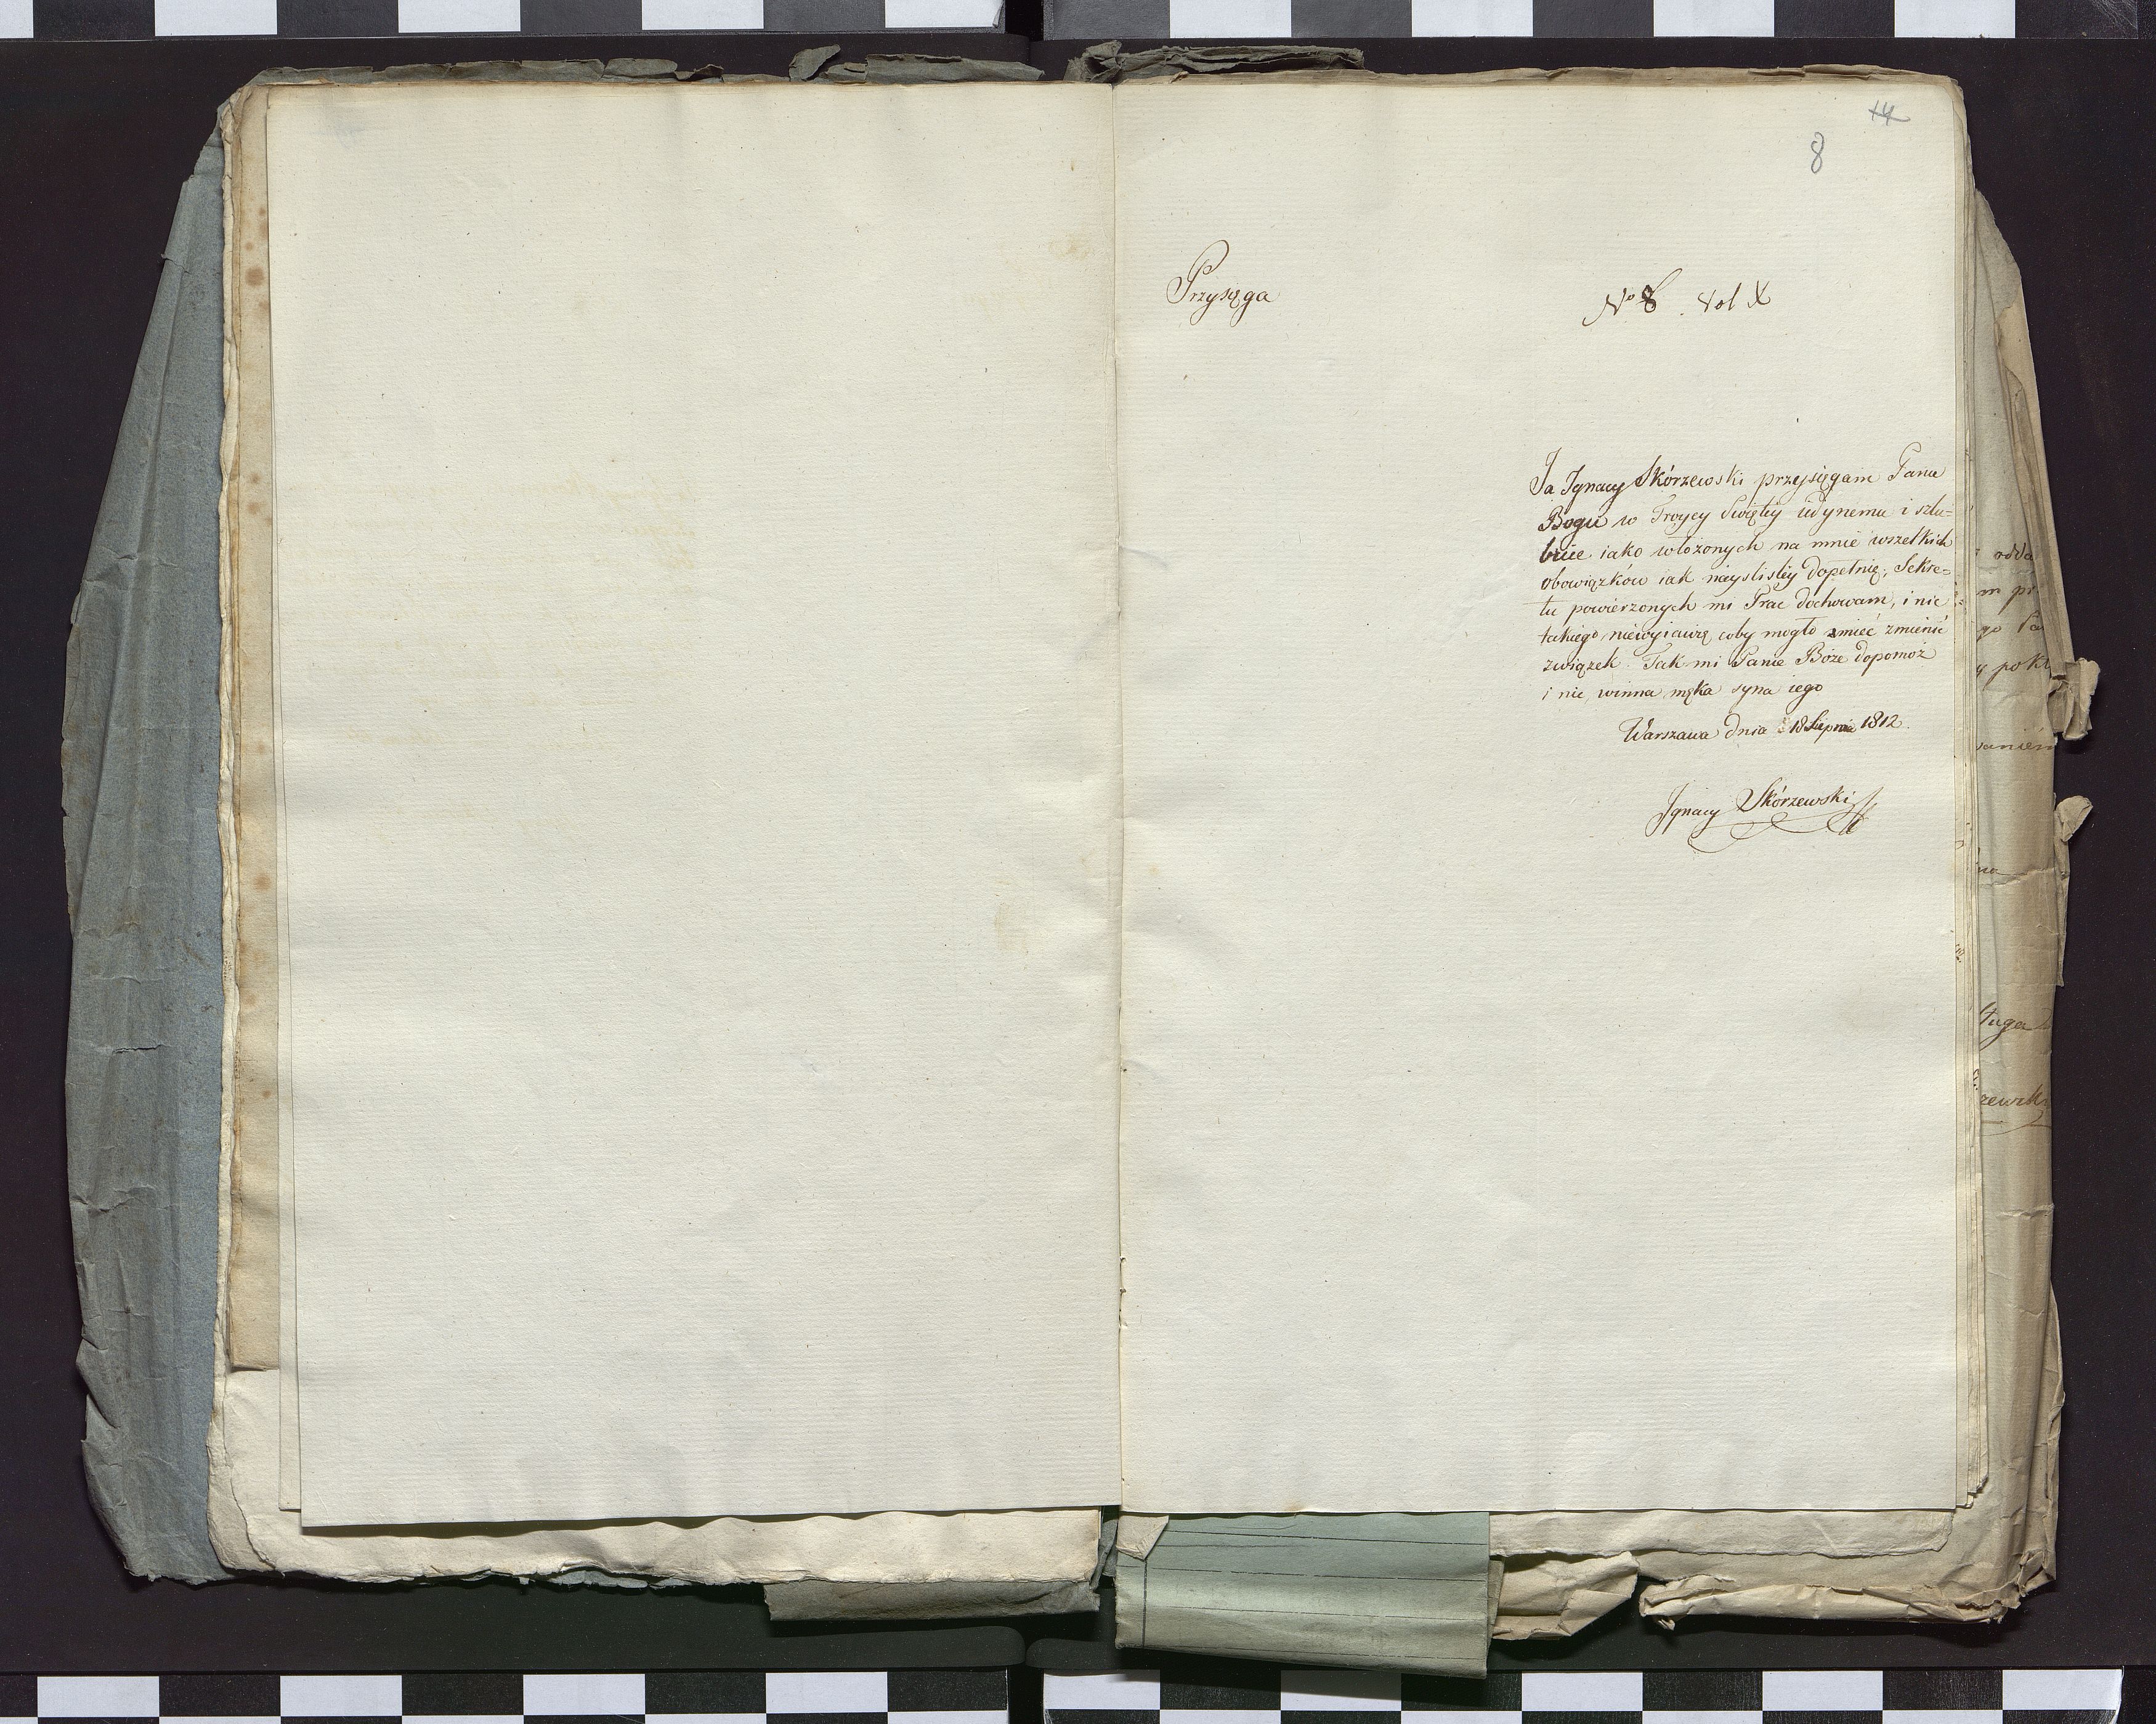 14
8
Przysęga
No 8. Vol X
Ja Ignacy Skórzewski przysięgam Panu
Bogu w Troycy Swiętey iedynemu i szlu=
buie iako włożonych na mnie wszelkich
obowiązków iak nayslisley dopełnię; Sekre=
tu powierzonych mi Prac dochowam, i nic
takiego niewyiawię coby mogło mieć zmienić
związek. Tak mi Panie Boże dopomoż
i nie winna męka syna iego
Warszawa dnia 18 Sierpnia 1812.
Ignacy Skórzewski
odda
m pr
go
y pok
aniem
ługa
zewsk